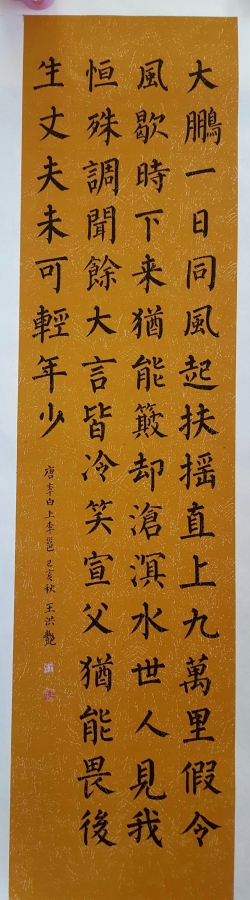 大鵬一日同風起扶摇直上九萬里假令
風歇時下来猶能簸却滄溟水世人見我
恒殊調聞餘大言皆冷笑宣父猶能畏後
生丈夫未可輕年少
唐李白上李邕 己亥秋 王洪艷